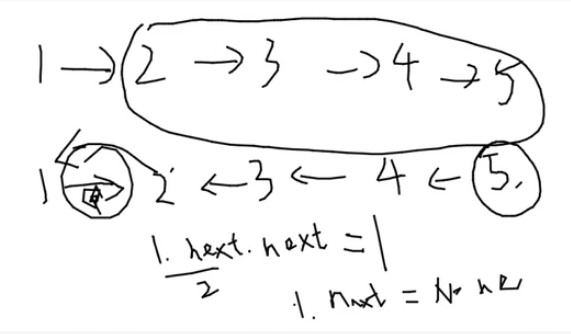 1 → 2 → 3 → 4 → 5
1 → 2 ← 3 ← 4 ← 5.
1. next. next = 1
2
1. next = None